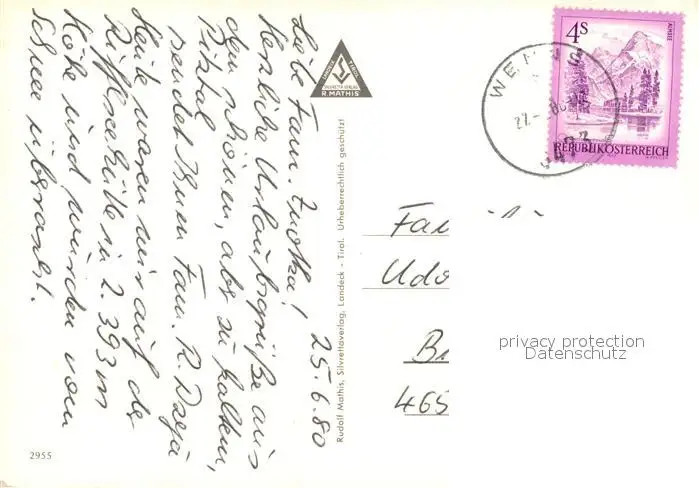 25.6.80
Liebe Fam. Znotka!
Herzliche Urlaubsgrüße aus
dem schönen, aber zu kalten,
Pitztal
sendet Ihnen Fam. R. Dzeja
Heute waren wir auf der
Rifflseehütte in 2.393 m
Höhe und wurden vom
Schnee überrascht.
2955
R. MATHIS
Rudolf Mathis, Silvrettaverlag, Landeck - Tirol. Urheberrechtlich geschützt!
4S
ALMSEE
REPUBLIK ÖSTERREICH
WENNS
Fa
Udo
B
465
privacy protection
Datenschutz